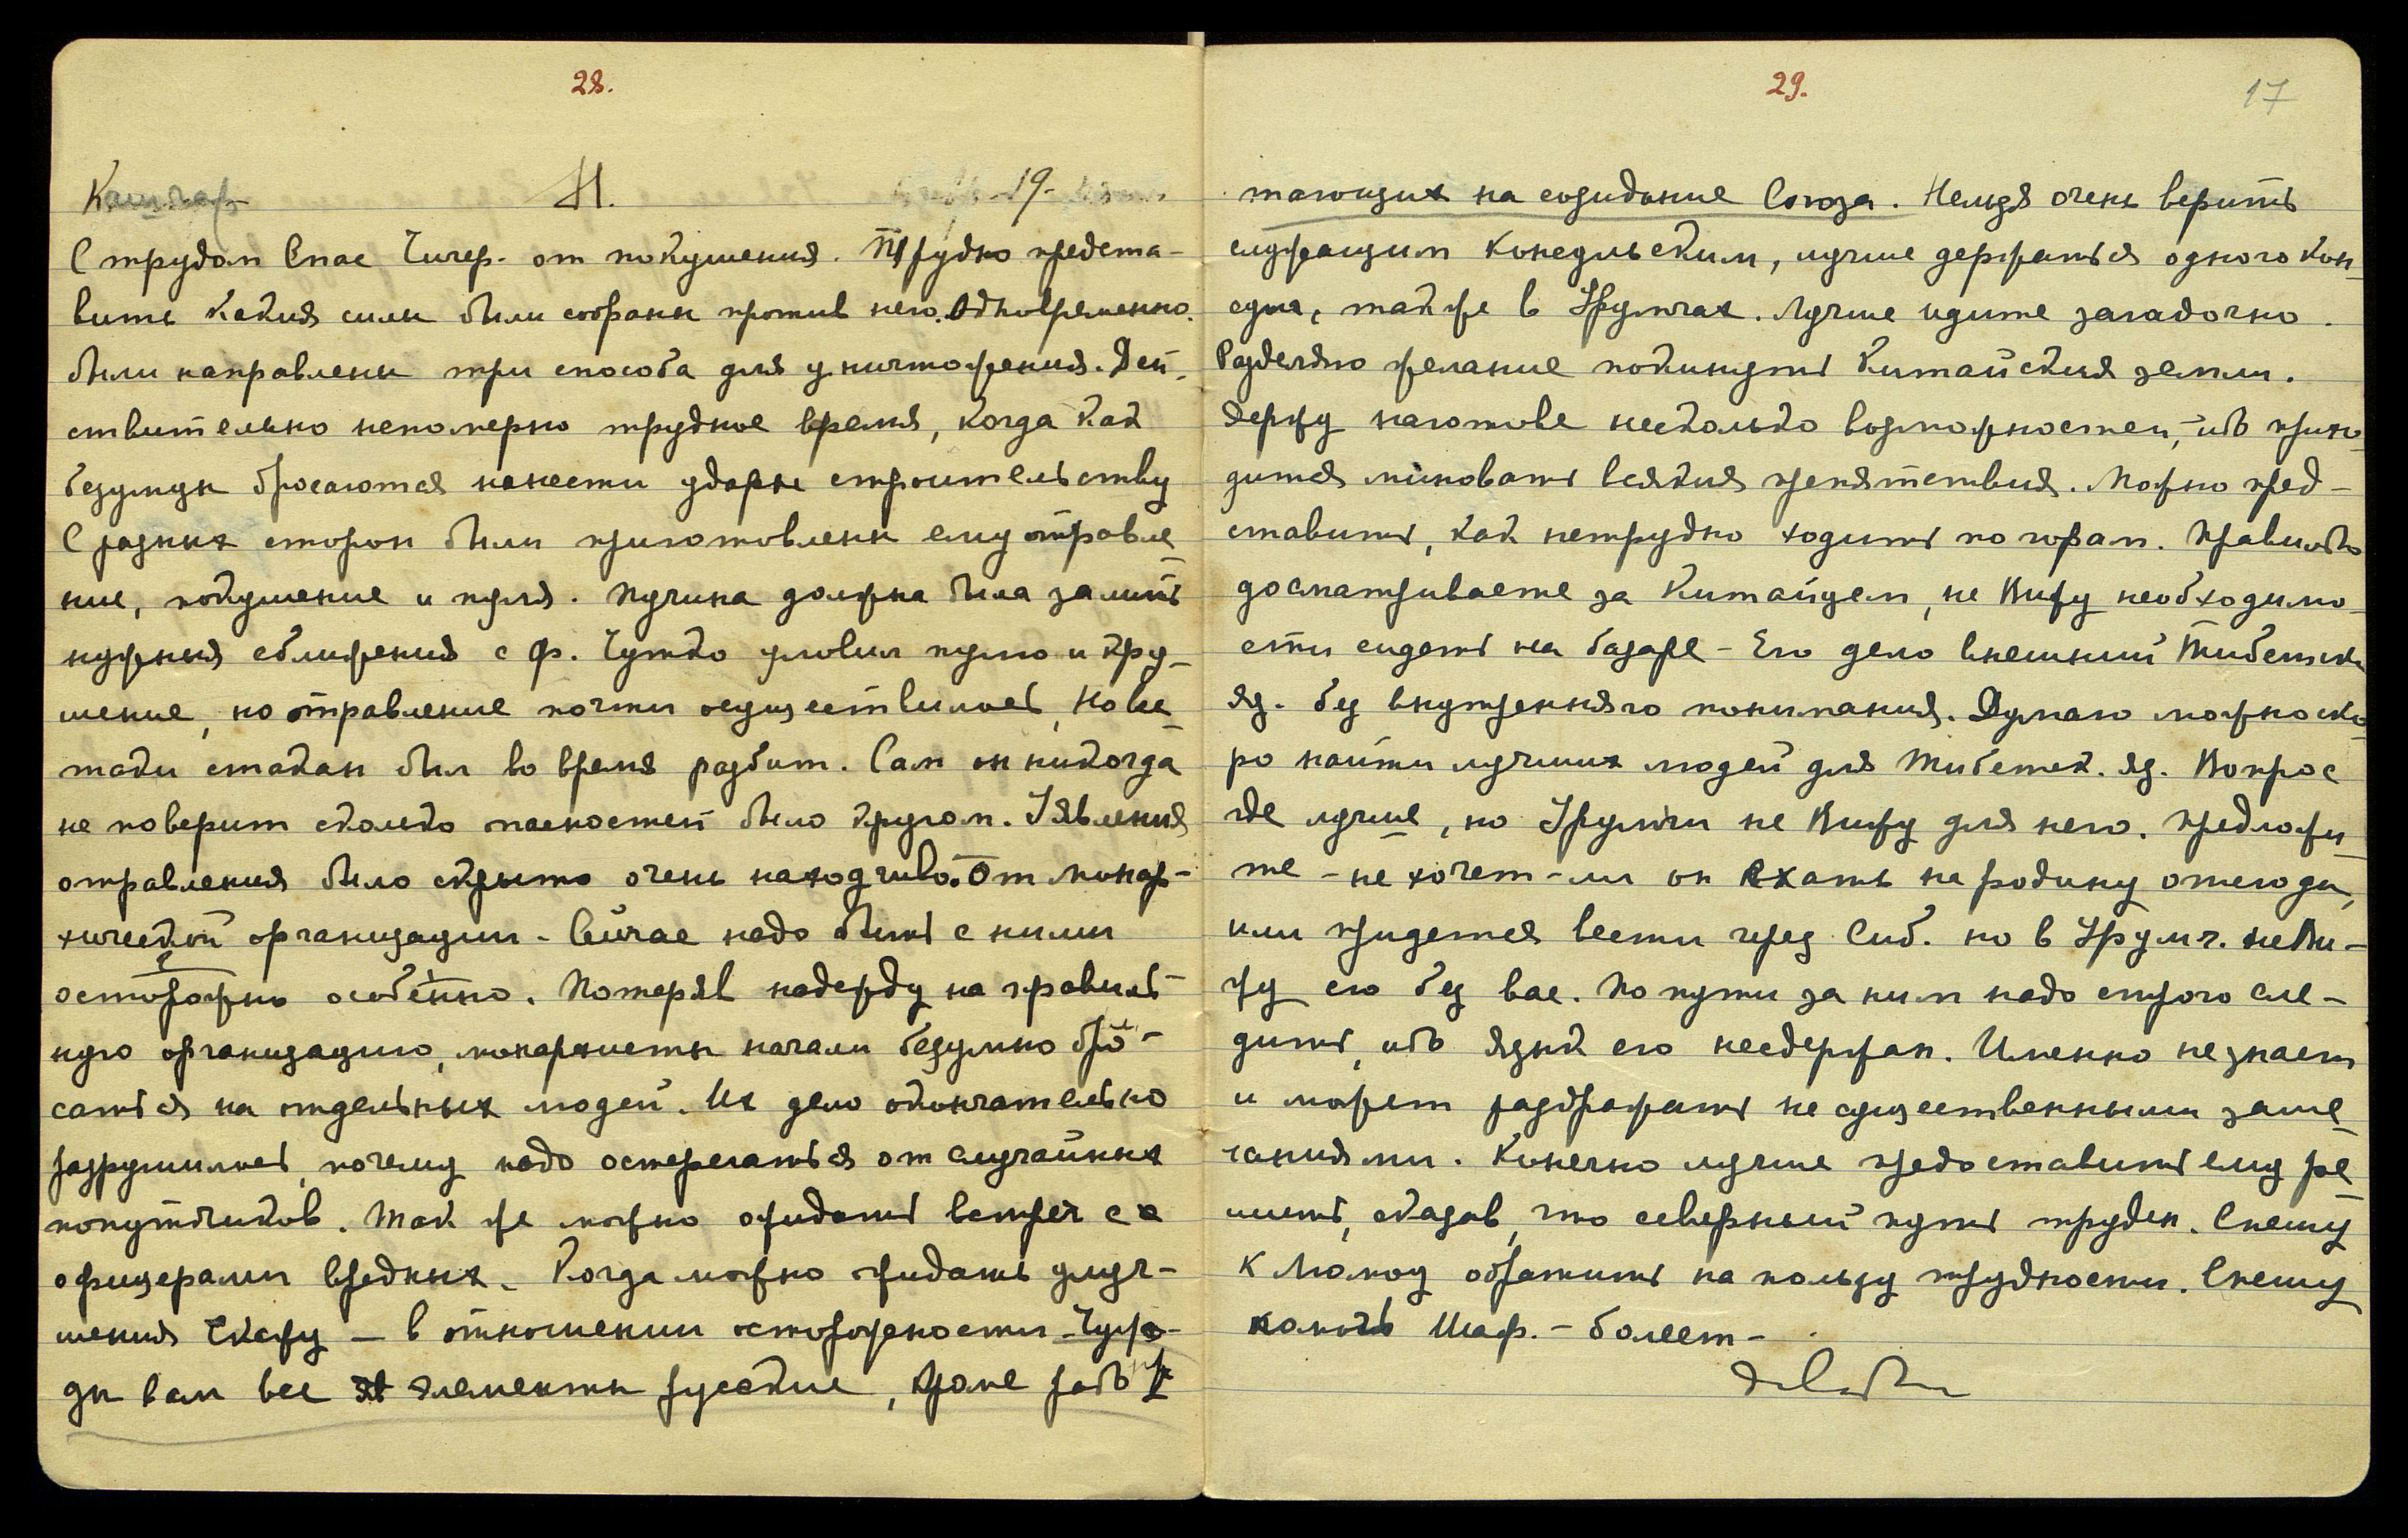 28.
Кашгар H. 19-
С трудом Спас Чичер. от покушения. Трудно предста-
вить какия силы были собраны против него. Одновременно
были направлены три способа для уничтожения. Дей-
ствительно непомерно трудное время, когда как
безумцы бросаются нанести удары строительству
С разных сторон были приготовлены ему отравле-
ние, покушение и пуля. Пучина должна была залить
нужныя сближения с Ф. Чутко уловил пулю и кру-
шение, но отравление почти осуществилось, но все-
таки стакан был во время разбит. Сам он никогда
не поверит сколько пасностей было кругом. Уявления
отравления было скрыто очень находчиво. От монар-
хической организации - Сейчас надо быть с ними
осторожно особенно. Потеряв надежду на правиль-
ную организацию, монархисты начали безумно бро-
саться на отдельных людей. Их дело окончательно
разрушилось, почему надо остерегаться от случайных
попутчиков. Так же можно ожидать встреч с
офицерами вредных. Когда можно ожидать улуч-
шения Скажу — в отношении осторожности - Чуж-
ды вам все элементы русские, кроме рабо
29.
17
тающих на созидание Союза. Нельзя очень верить
служащим консульским, лучше держаться одного кон-
сула, также в Урумчах. Лучше идите загадочно.
Разделяю желание покинуть Китайския земли.
Держу наготове несколько возможностей, ибо прихо-
дится миновать всякия препятствия. Можно пред-
ставить, как нетрудно ходить по горам. Правильно
досматриваете за Китайцем, не Вижу необходимо-
сти сидеть на базаре - Его дело внешний Тибетск
яз. без внутренняго понимания. Думаю можно ско-
ро найти лучших людей для Тибетск. яз. Вопрос
где лучше, но Урумчи не Вижу для него. Предложи-
те - не хочет-ли он ехать на родину отсюда,
или придется вести чрез Сиб. но в Урумч. не Ви-
жу его без вас. По пути за ним надо строго сле-
дить, ибо язык его несдержан. Именно не знает
и может раздражать не существенными заме-
чаниями. Конечно лучше предоставить ему ре-
шить, сказав, что северный путь труден. Спешу
к Люмоу обратить на пользу трудности. Спешу
помочь Шаф. - болеет -